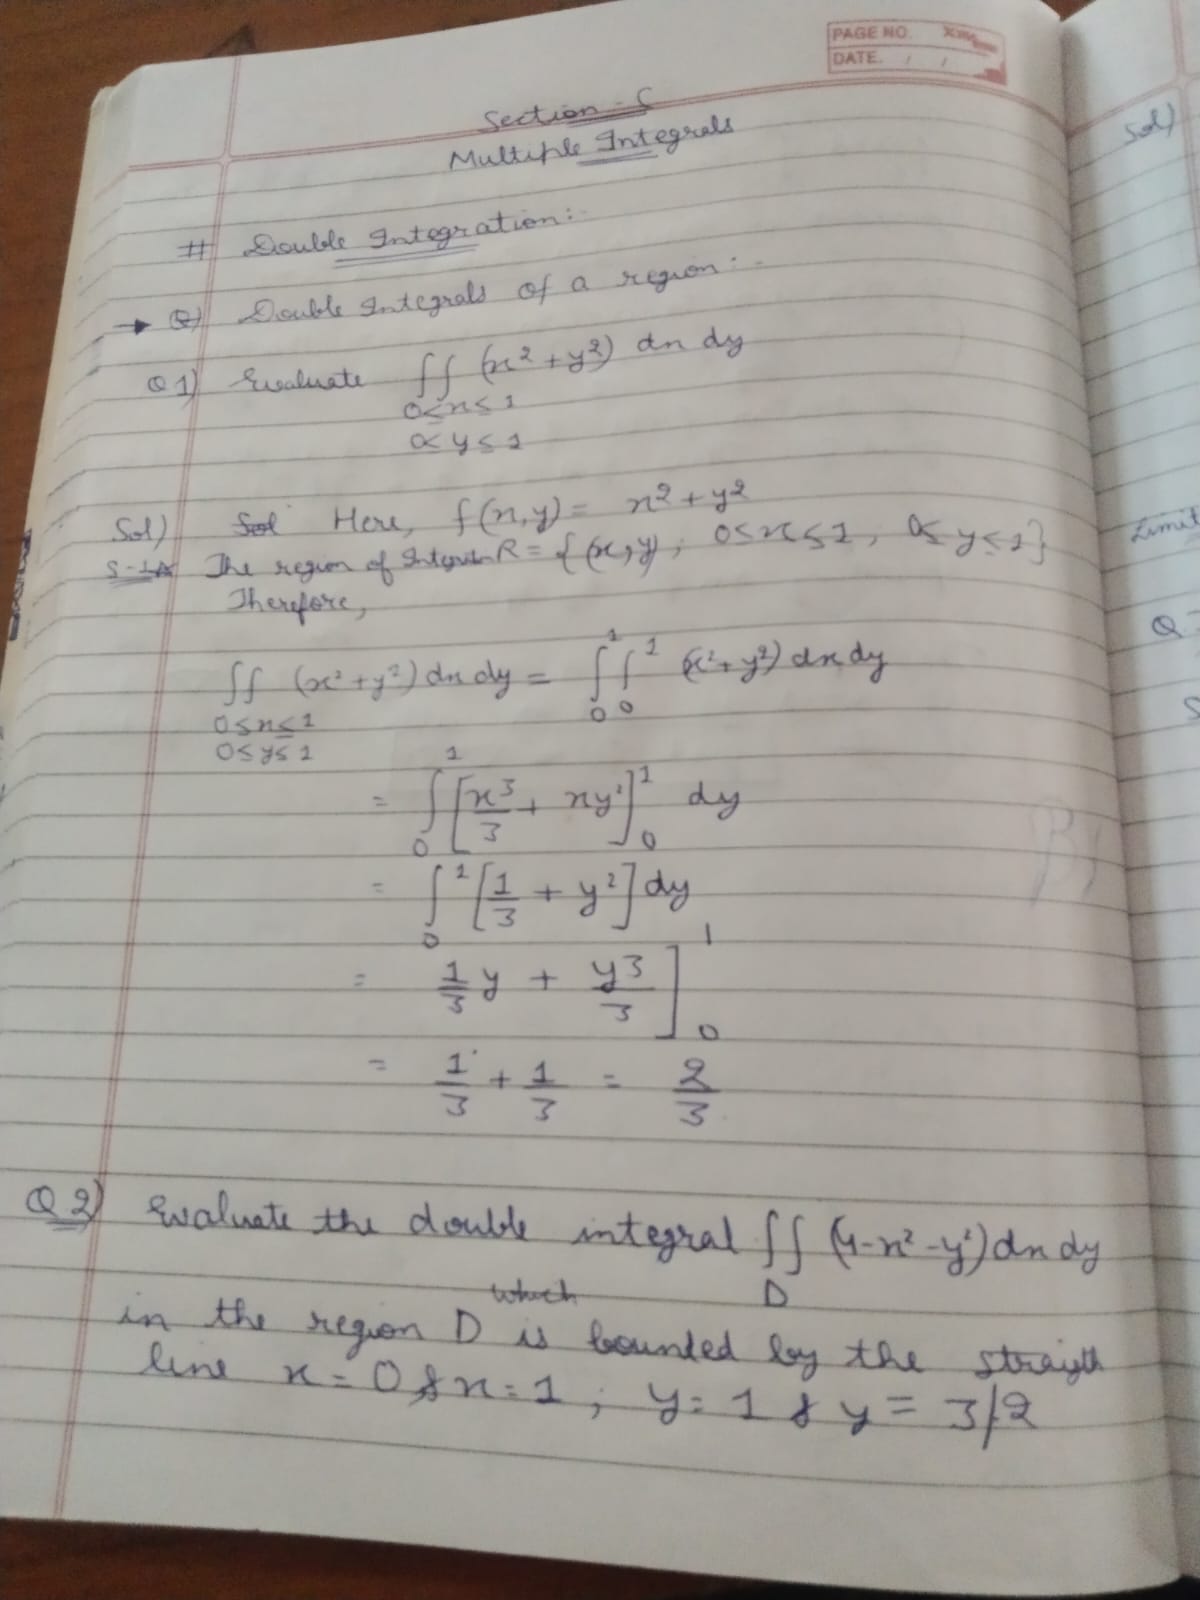 PAGE NO.
DATE. / /
Section - C
Multiple Integrals
# Double Integration:-
→ Q) Double Integrals of a region:-
Q 1) Evaluate ∫∫ (x² + y²) dx dy
0≤x≤1
0≤y≤1
Sol) Sol Here, f(x,y) = x² + y²
The region of R = {(x,y); 0≤x≤1, 0≤y≤1}
Therefore,
∫∫ (x²+y²) dx dy = ∫₀¹ ∫₀¹ (x²+y²) dx dy
0≤x≤1
0≤y≤1
= ∫₀¹ [x³/3 + xy²]₀¹ dy
= ∫₀¹ [1/3 + y²] dy
= 1/3 y + y³/3 ]₀¹
= 1/3 + 1/3 = 2/3
Q 2) Evaluate the double integral ∫∫ (4-x²-y²) dx dy
which D
in the region D is bounded by the straigth
line x = 0 & x = 1 ; y = 1 & y = 3/2
Sol)
Limit
Q
S